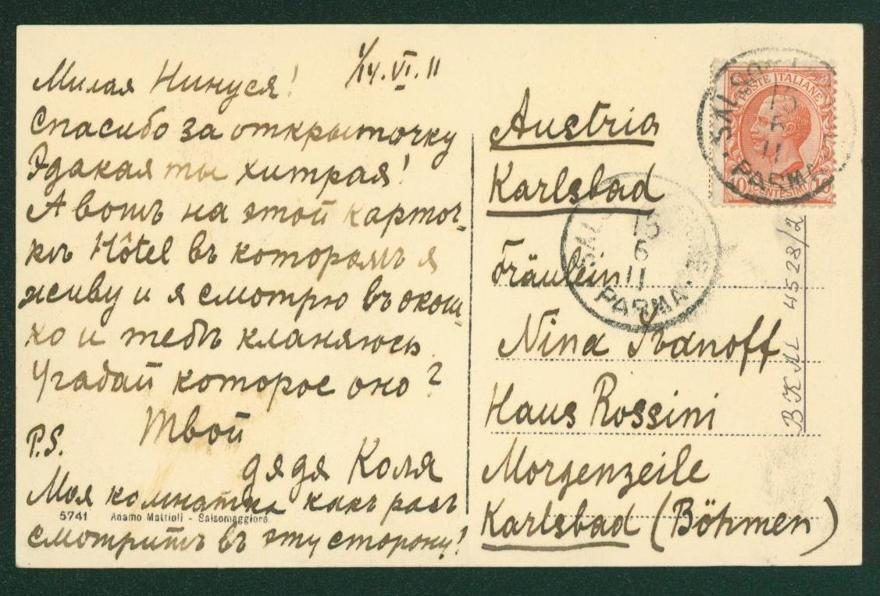 1/14.VI.11
Милая Нинуся!
Спасибо за открыточку
Эдакая ты хитрая!
А вотъ на этой карточ-
кѣ Hôtel въ которомъ я
живу и я смотрю въ окош-
ко и тебѣ кланяюсь.
Угадай которое оно?
Твой
дядя Коля
P.S.
Моя комнатка какъ разъ
смотритъ въ эту сторону!
5741 Adamo Mattioli - Salsomaggiore
Austria
Karlsbad
Fräulein
Nina Ivanoff
Haus Rossini
Morgenzeile
Karlsbad (Böhmen)
POSTE ITALIANE
PARMA
15
6
11
PARMA
ВКМ 4528/2